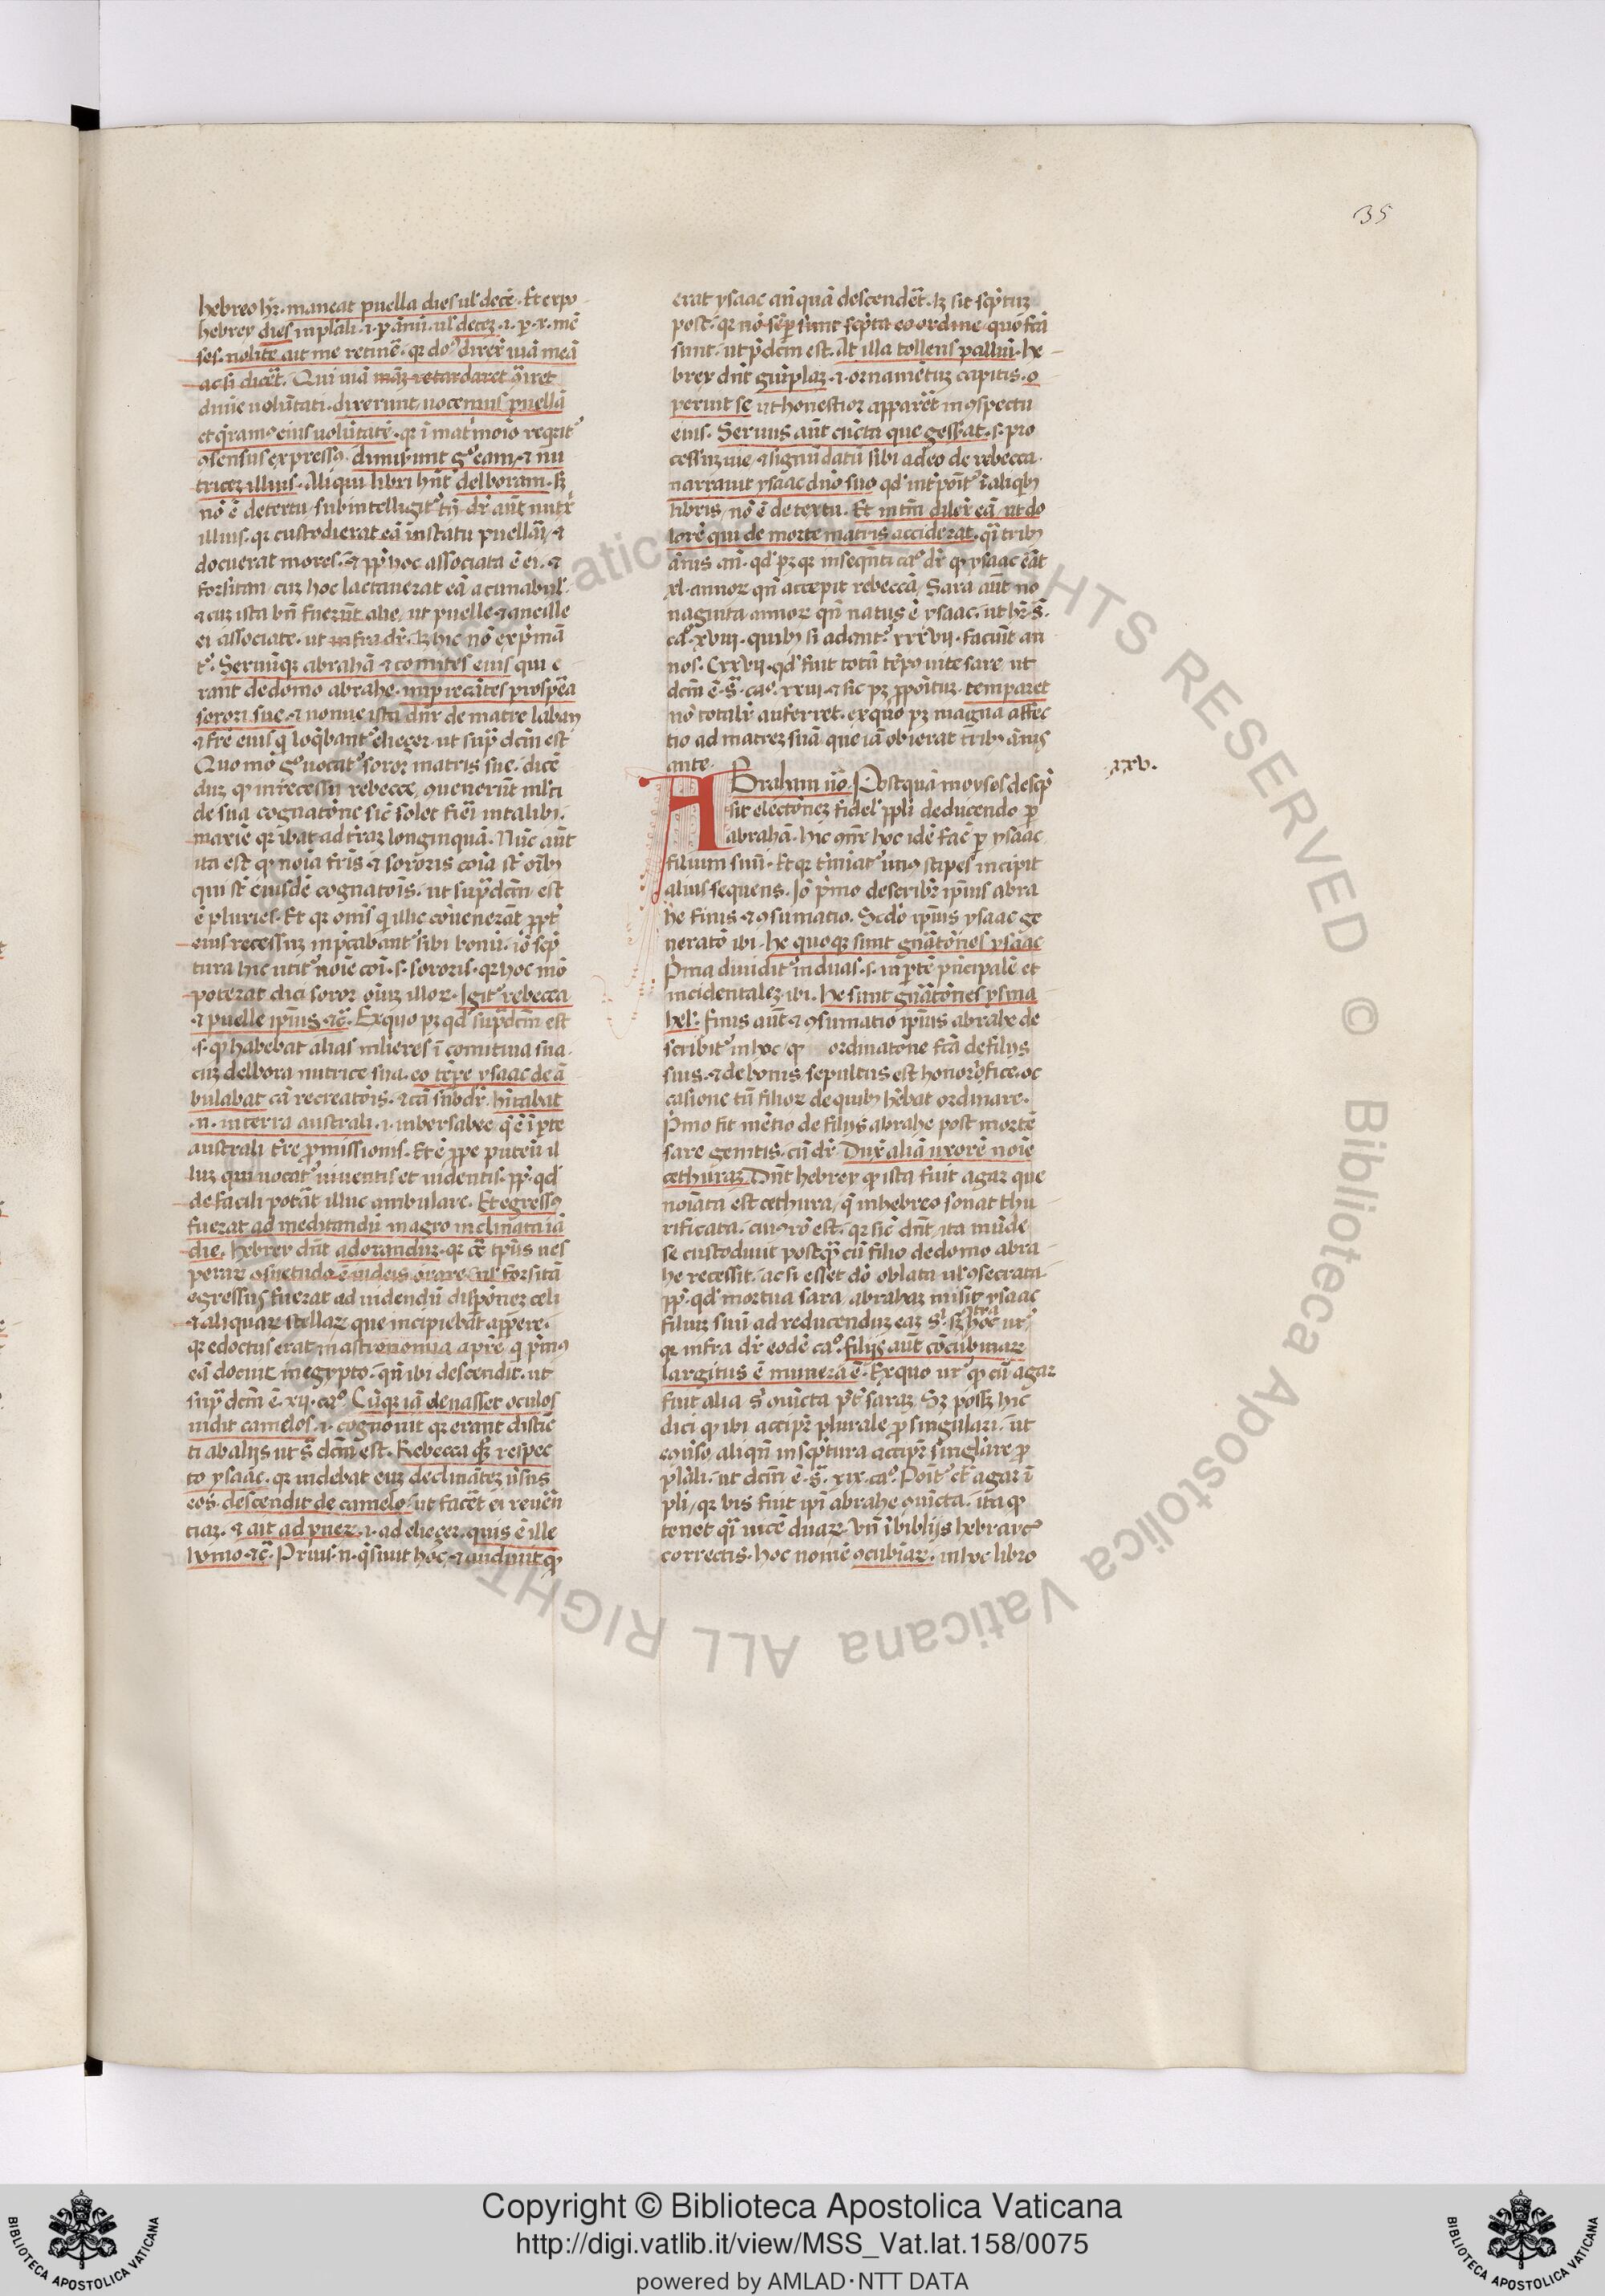 35
hebreo hr̃. maneat puella dies ul' decē. Et expo
hebrey dies in pl'ali .i. p ānū. ul' decez .i. p .x. mē
ses. nolite ait me retinē. qr do⁹ direx̄ uiā meā
ac si dicēt. Qui uiā māz retardaret q̄iret
diuīe uolūtati. dixerunt uocemus puellā
et q̄ram⁹ eius uolūtatē. qr ī mat'moīo reqrit'
ꝯsensus expressꝰ. dimiserunt g° eam, ⁊ nu
tricez illius. Aliqui libri hn̄t delboram. sꝫ
nō ē de textu, subintelligit' tn̄. dr̄ aūt nutx̄
illius. qr custodierat eā in statu puellāi, ⁊
docuerat mores. ⁊ ꝓp' hoc associata ē ei. ⁊
forsitan, cuz hoc lactauerat eā a cunabul'.
⁊ cuz ista bn̄ fuerūt alie, ut puelle ⁊ ancille
ei associate. ut infra dr̄. lꝫ hic nō exp'mā
t'. Seruūqꝫ abrahā ⁊ comites eius qui e
rant de domo abrahe. imprecātes prospēa
sorori sue. ⁊ nomīe ista dn̄r de matre laban
⁊ fr̄e eius q̄ loq̄bant' eliezer. ut sup̄ dcm̄ est
Quo mō g° uocat' soror matris sue. dicē
duz qꝫ in recessu rebecce, ꝯuenerūt ml'ti
de sua cognatōne sic̄ solet fiēi in talibꝫ.
maxīe qr ibat ad t'raz longinquā. Nūc aūt
ita est qꝫ noīa fr̄is ⁊ sororis coīa st̄ oībꝫ
qui st̄ eiusdē cognatōis. ut sup̄ dcm̄ est
ē pluries. Et qr om̄s q illic cōuenerāt ꝓpt'
eius recessuz inp̄cabant' sibi bonū. iō sc̄p
tura hic utit' noīe coī. s. sororis. qr hoc mō
poterat dici soror oīuz illoꝝ. Igit' rebecca
⁊ puelle ip̄ius ⁊c̄. Ex quo pꝫ qd' sup̄ dcm̄ est
.s. qꝫ habebat alias mulieres ī comitiua sua.
cuz delbora nutrice sua. eo tēpe ysaac deā
bulabat cā recreatōis. ⁊ cā subdr̄. hītabat
.n. in terra australi .i. in bersabee q̄ ē ī pte
australi t're ꝓmissionis. Et ē ꝓpe puteū il
luz qui uocat' uiuentis et uidentis. ꝓp' qd'
de facili potāt illuc ambulare. Et egressꝰ
fuerat ad meditandū in agro inclinata iā
die. hebrey dn̄t adorandum. qr
peraꝝ ꝯsuetudo ē iudeis orare. ul' forsitā
egressus fuerat ad uidendū dispōnez celi
⁊ aliquaꝝ stellaꝝ que incipiebāt appere.
qr edoctus erat in astronomia a pr̄e, q p'mꝰ
eā docuit in egypto. qn̄ ibi descendit. ut
sup̄ dcm̄ ē .xij. ca°. Cūqꝫ iā eleuasset oculos
uidit camelos. .i. cognouit qr erant distīc
ti ab alijs ut s̄ dcm̄ est. Rebecca qꝫ respec
to ysaac. qr uidebat euz declināteꝫ ūsus
eos. descendit de camelo. ut facēt ei reuerē
tiaꝫ. ⁊ ait ad pueꝝ .i. ad eliezer. quis ē ille
homo ⁊c̄. Prius .n. q̄siuit hoc. ⁊ audiuit qꝫ
erat ysaac anq̄uā descendēt. lꝫ sit sc̄ptuꝫ
post. qr nō semp sunt sc̄pta eo ordine, quo fc̄a
sunt. ut p'dcm̄ est. At illa tollens palliū. he
brey dn̄t guīplaꝫ. ⁊ ornamētuꝫ capitis. o
peruit se ut honestior apparēt in ꝯspectu
eius. Seruus aūt cūcta que gesserat. s. pro
cessuꝫ uie, ⁊ signū datū sibi a deo de rebecca.
narrauit ysaac dn̄o suo qd' int'pōit' ī aliqbꝫ
libris, nō ē de textu. Et in tm̄ dilex̄ eā, ut do
lorē qui de morte matris acciderat. q̄i tribꝫ
ānis .añ. qd' pꝫ qr in seqn̄ti ca° dr̄ qꝫ ysaac eāt
.xl. annoꝝ qn̄ accepit rebeccā, Sara aūt no
naginta annoꝝ qn̄ natus ē ysaac. ut hr̄ .s̄.
ca° .xviij. quibꝫ si addant' .xxxvij. faciūt an
nos .Cxxvij. qd' fuit totū tēpꝰ uite sare, ut
dcm̄ ē .s̄. ca° .xxiij. ⁊ sic pꝫ ꝓpōituꝫ. temparet
nō totalr̄ auferret. ex quo pꝫ magna affec
tio ad matreꝫ suā que iā obierat tribꝫ ānis
ante.
xxv.
ABraham ūo. Postquā moyses desc̄p
sit electōneꝫ fidel' ppli deducendo p
abrahā. hic ꝯn̄r hoc idē fac̄ p ysaac
filium suū. Et qr t'miāt' unꝰ stipes incipit
alius sequens. Iō p'mo describr̄ ip̄ius abra
he finis ⁊ ꝯsumatio. Scdo ip̄ius ysaac ge
neratō ibi. he quoqꝫ sunt gn̄atōnes ysaac
P'ma diuidit' in duas .s. in p'tē p'ncipalē et
incidentaleꝫ. ibi. he sunt gn̄atōnes ysma
hel'. finis aūt ⁊ ꝯsumatio ip̄ius abrahe de
scribit' in hoc, qꝫ ordinatōne fc̄a de filijs
suis. ⁊ de bonis sepultus est honorifice. oc
casione tn̄ filioꝝ de quibꝫ hēbat ordinare.
P'mo fit mētio de filijs abrahe post mortē
sare genitis. cū dr̄. Dux̄ aliā uxorē noīe
cethuraꝫ. Dn̄t hebrey qꝫ ista fuit agar que
noīata est cethura, q̄ in hebreo sonat thu
rificata. cuiꝰ rō est. qr sic̄ dn̄t, ita mūde
se custodiuit postqꝫ cū filio de domo abra
he recessit. ac si esset dō oblata ul' ꝯsecrata
ꝓp' qd' mortua sara, abraham misit ysaac
filiuꝫ suū ad reducenduꝫ eaꝫ s'. sꝫ ꝯtra hoc ur̄
qr infra dr̄ eodē ca°. filijs aūt cōcubinaꝝ
largitus ē munera ⁊c̄. Ex quo ur̄ qꝫ cū agar
fuit alia s' ꝯiūcta p't' saraꝫ. Sꝫ posset hic
dici qꝫ ibi accipr̄ plurale ꝓ singulari. ut
eōuso, aliqn̄ in sc̄ptura accipr̄ singlare ꝓ
pl'ali. ut dcm̄ ē .s̄. xix. ca°. Pōit' et̄ agar ī
pli, qr bis fuit ip̄i abrahe ꝯiūcta. ita qꝫ
tenet q̄i uicē duaꝝ. Vn̄ ī biblijs hebrayc̄
correctis. hoc nomē ꝯcubīaꝝ. in hoc libro
Copyright © Biblioteca Apostolica Vaticana
http://digi.vatlib.it/view/MSS_Vat.lat.158/0075
powered by AMLAD·NTT DATA
BIBLIOTECA APOSTOLICA VATICANA
BIBLIOTECA APOSTOLICA VATICANA
© Biblioteca Apostolica Vaticana ALL RIGHTS RESERVED